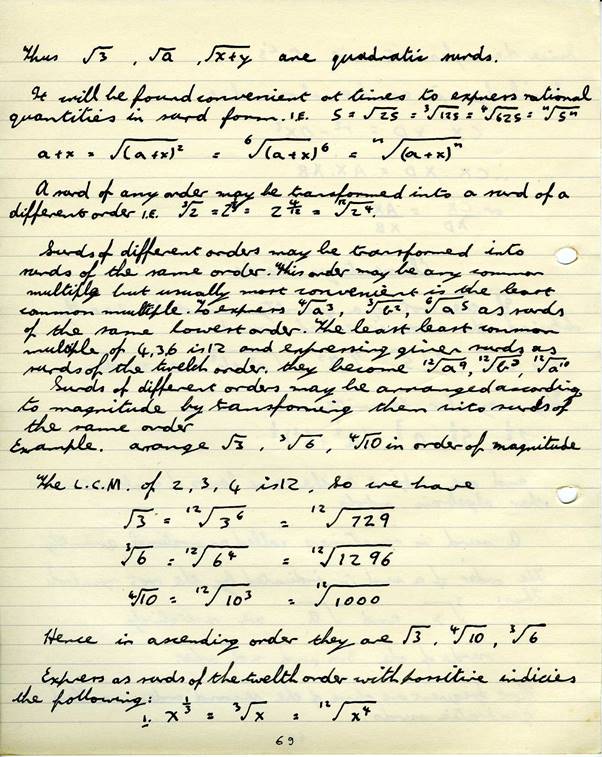 Thus √3 , √a , √x+y are quadratic surds.
It will be found convenient at times to express rational
quantities in surd form. I.E. 5 = √25 = ³√125 = ⁴√625 = ⁿ√5ⁿ
a+x = √(a+x)² = ⁶√(a+x)⁶ = ⁿ√(a+x)ⁿ
A surd of any order may be transformed into a surd of a
different order I.E. ³√2 = 2^⅓ = 2^4/12 = ¹²√2⁴.
Surds of different orders may be transformed into
surds of the same order. This order may be any common
multiple but usually most convenient is the least
common multiple. To express ⁴√a³, ³√b², ⁶√a⁵ as surds
of the same lowest order. The least least common
multiple of 4,3,6 is 12 and expressing given surds as
surds of the twelth order, they become ¹²√a⁹, ¹²√b⁸, ¹²√a¹⁰
Surds of different orders may be arranged according
to magnitude by transforming them into surds of
the same order
Example. arange √3 , ³√6 , ⁴√10 in order of magnitude
The L.C.M. of 2, 3, 4 is 12, So we have
√3 = ¹²√3⁶ = ¹²√729
³√6 = ¹²√6⁴ = ¹²√1296
⁴√10 = ¹²√10³ = ¹²√1000
Hence in ascending order they are √3 , ⁴√10 , ³√6
Express as surds of the twelth order with possitive indicies
the following:
1. x^⅓ = ³√x = ¹²√x⁴
69